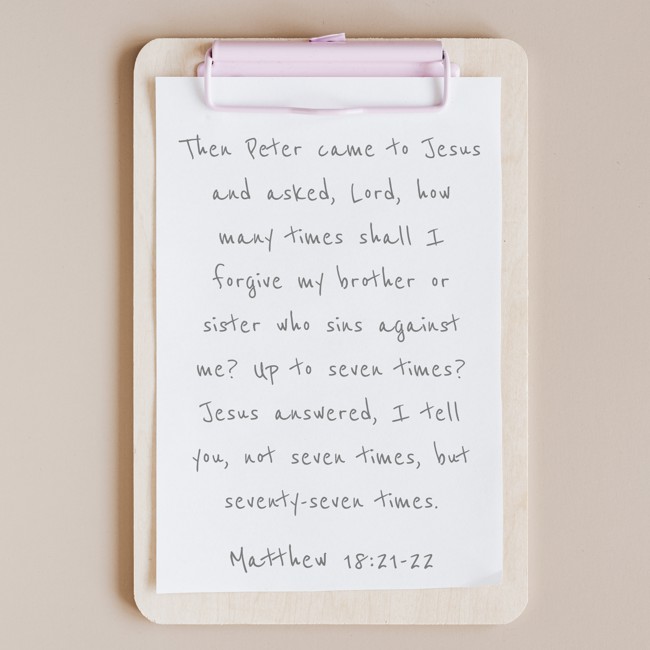 Then Peter came to Jesus
and asked, Lord, how
many times shall I
forgive my brother or
sister who sins against
me? Up to seven times?
Jesus answered, I tell
you, not seven times, but
seventy-seven times.
Matthew 18:21-22